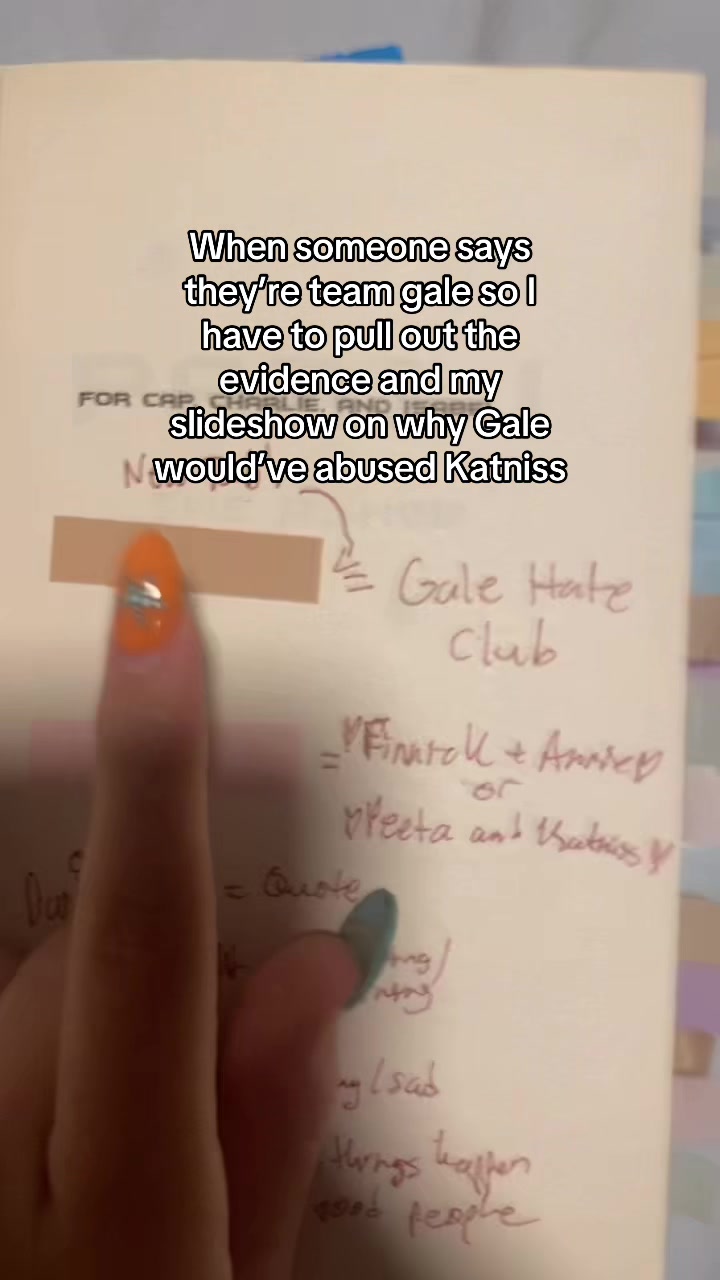 When someone says
they're team gale so I
have to pull out the
evidence and my
slideshow on why Gale
would've abused Katniss
FOR CAP, CHARLIE, AND ISABEL
= Gale Hate
Club
= ♥Finnick + Annie♥
or
♥Peeta and Katniss♥
= Quote
/sad
things happen
people